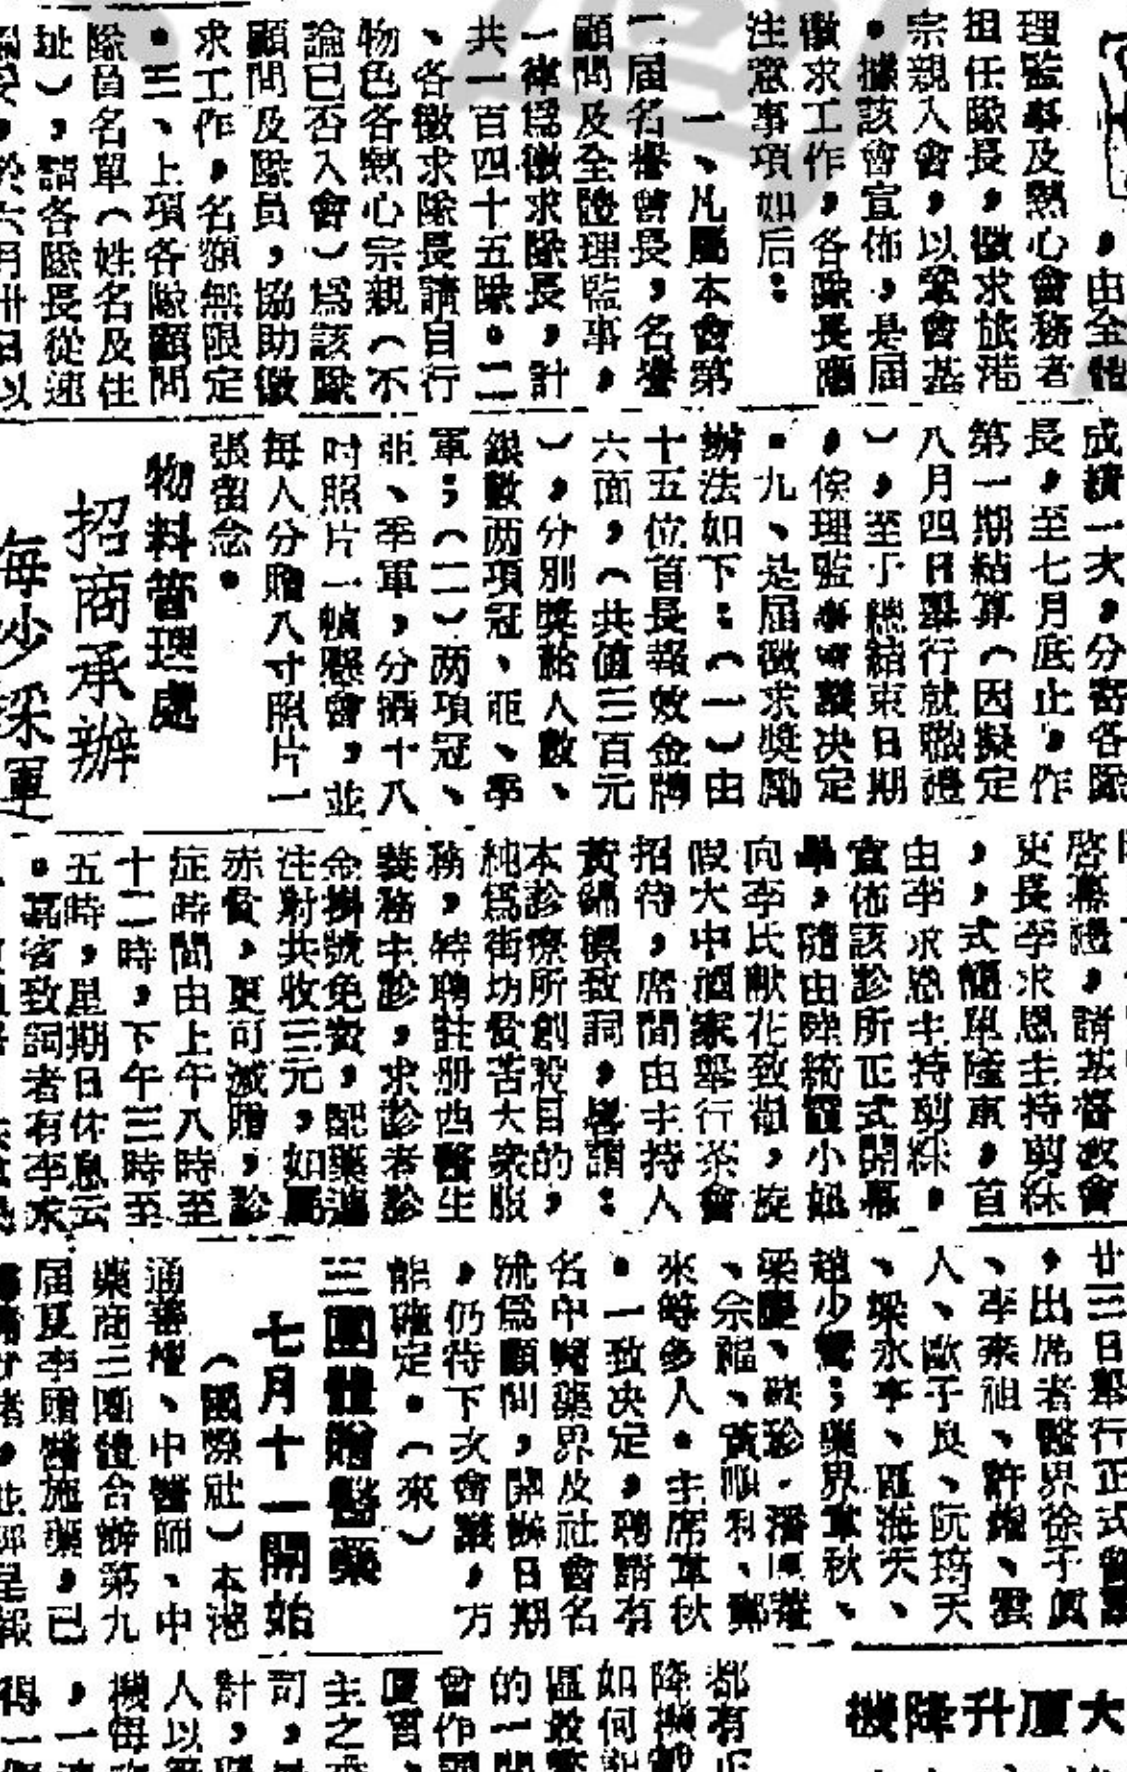 ，由全體
理監事及熱心會務者
担任隊長，徵求旅港
宗親入會，以鞏會基
。據該會宣佈，是屆
徵求工作，各隊長應
注意事項如后：
一、凡屬本會第
二屆名譽會長，名譽
顧問及全體理監事，
一律爲徵求隊長，計
共一百四十五隊。二
、各徵求隊長請自行
物色各熱心宗親（不
論已否入會）爲該隊
顧問及隊員，協助徵
求工作，名額無限定
。三、上項各隊顧問
隊員名單（姓名及住
址），請各隊長從速
於六月卅日以
成績一次，分寄各隊
長，至七月底止，作
第一期結算（因擬定
八月四日舉行就職禮
），至于總結束日期
，俟理監事會議决定
。九、是屆徵求獎勵
辦法如下：（一）由
十五位首長報效金牌
六面，（共值三百元
），分別獎給人數、
銀數两項冠、亜、季
軍；（二）两項冠、
亜、季軍，分攝十八
吋照片一幀懸會，並
每人分贈八寸照片一
張留念。
物料管理處
招商承辦
每少採運
啓幕禮，請基督敎會
吏長李求恩主持剪綵
，，式簡單隆重，首
由李求恩主持剪綵，
宣佈該診所正式開幕
畢，隨由 小姐
向李氏獻花致敬，旋
假大中酒家舉行茶會
招待，席間由主持人
黃錦 致詞，畧謂：
本診療所創設目的，
純爲街坊貧苦大衆服
務，特聘註册西醫生
義務主診，求診者診
金掛號免費，配藥連
注射共收三元，如屬
赤貧，更可減贈，診
症時間由上午八時至
十二時，下午三時至
五時，星期日休息云
。嘉客致詞者有李求
廿三日舉行正式會議
，出席者醫界徐子眞
、李來祖、許燦、雲
人、歐子良、阮琦天
、梁永亨、區海天、
趙少 ；藥界章秋、
梁慶、 珍、潘
、佘福、黃順利、鄭
來等多人。主席章秋
。一致决定，聘請有
名中醫藥界及社會名
流爲顧問，開辦日期
，仍待下次會議，方
能確定。（來）
三團體贈醫藥
七月十一開始
（國際社）本港
通善壇、中醫師、中
藥商三團體合辦第九
届夏季贈醫施藥，已
大厦升降機
都有
降機
如何
區最
的一間
會作
主之
司，
計，
人以
機每
，一
得一